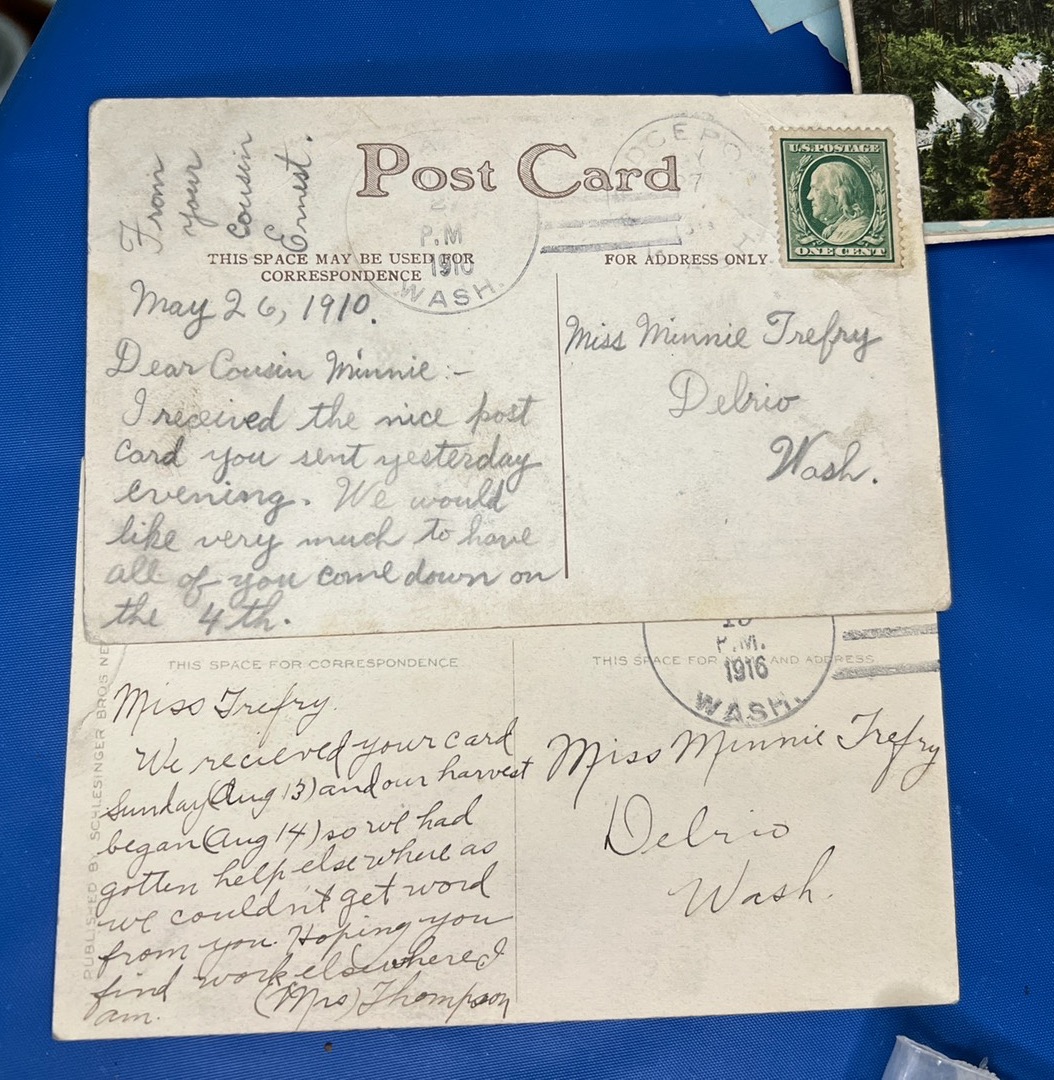 From
your
cousin
Ernest.
Post Card
P.M
1910
WASH.
U.S. POSTAGE
ONE CENT
THIS SPACE MAY BE USED FOR
CORRESPONDENCE
FOR ADDRESS ONLY
May 26, 1910.
Dear Cousin Minnie:-
I received the nice post
card you sent yesterday
evening. We would
like very much to have
all of you come down on
the 4th.
Miss Minnie Trefry
Delrio
Wash.
P.M.
1916
WASH.
PUBLISHED BY SCHLESINGER BROS
THIS SPACE FOR CORRESPONDENCE
THIS SPACE FOR NAME AND ADDRESS
Miss Trefry
We recieved your card
Sunday (Aug 13) and our harvest
began (Aug 14) so we had
gotten help elsewhere as
we couldn't get word
from you. Hoping you
find work elsewhere I
am. (Mrs) Thompson
Miss Minnie Trefry
Delrio
Wash.